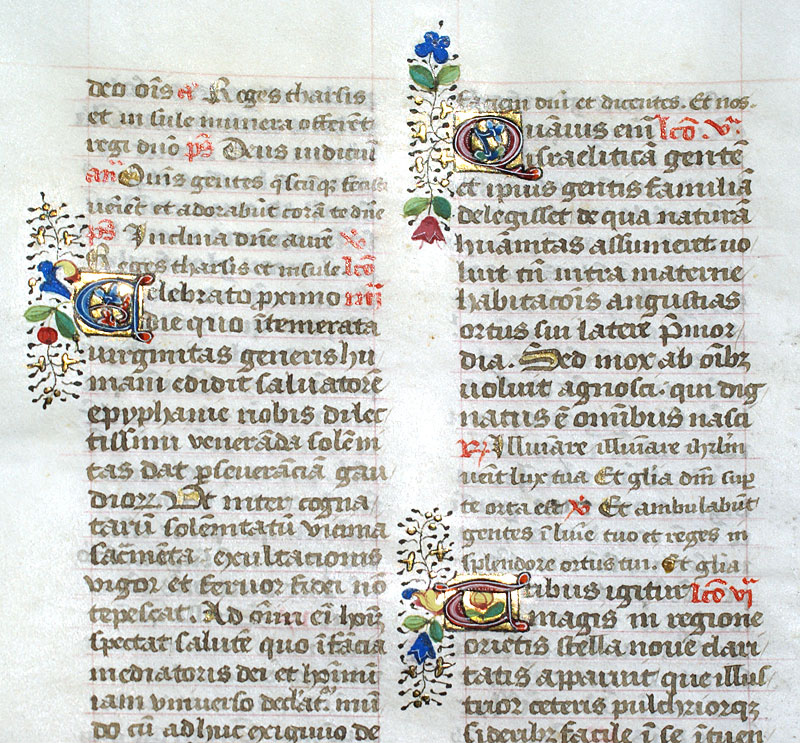 deo om̄s et Reges tharsis
et insule munera offerēt
regi dn̄o p̄s Deus iudiciū
an̄ Om̄s gentes q̄scūque fecisti
ueniēt et adorabūt corā te dn̄e
p̄s Inclina dn̄e aurē ℣
Reges tharsis et insule lc̄o
Celebrato pximo iiii
die quo ītemerata
uirginitas generis hu
mani edidit saluatorē
epyphanie nobis dilec
tissimi venerāda solēm
tas dat pseuerāciā gau
dioꝝ Ut inter cogna
tarū solēmitatū vicina
sacm̄ēta exultacionis
vigor et feruor fidei nō
tepescat. Ad om̄iū em̄ hoīm
spectat salutē quo īfācia
mediatoris dei et hominū
iam vniuerso declāt̄ mun
do cū adhuc exiguuo de
faciem dn̄i et dicentes. Et nos.
Quāuis em̄ lc̄o. v.ͣ
israeliticā gentē
et ipius gentis familiā
delegisset de qua naturā
huānitas assumeret uo
luit tn̄ intra materne
habitacōis angustias
ortus sui latere p̄mor
dia. Sed mox ab om̄ibꝫ
uoluit agnosci. qui dig
natus ē omībus nasci
℟ Illuīare illuīare ihrlm̄
uenit lux tua Et glīa dn̄i sup
te orta est ℣ Et ambulabūt
gentes ī luīe tuo et reges in
splendore ortus tui. Et glīa
Tribus igitur lc̄o vi
magis in regione
oriētis stella noue clari
tatis apparuit que illus
trior ceteris pulchriorqꝫ
sideribꝫ facile ī se ītuen